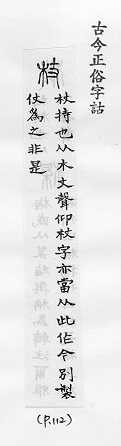 古今正俗字詁
杖
杖持也从木丈聲仰杖字亦當从此作今別製
仗為之非是
(P.112)